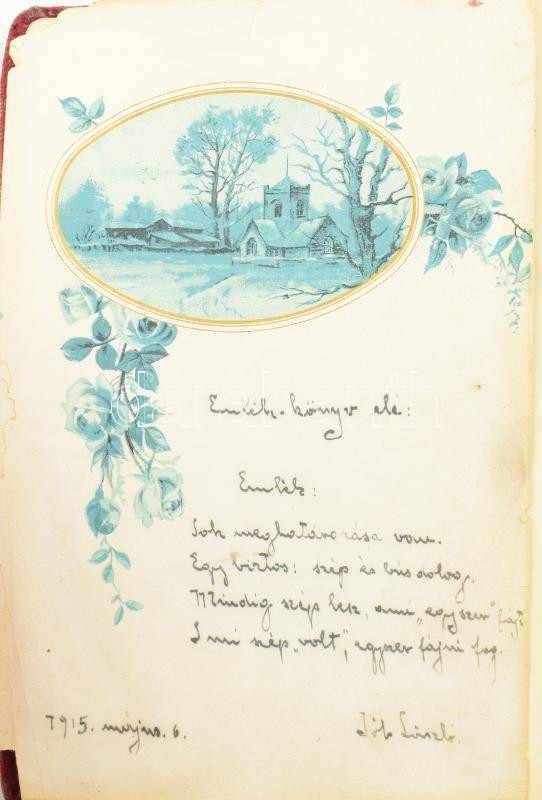 Emlék-könyv elé:
Emlék:
Sok meghatározása van.
Egy biztos: szép és bús dolog.
Mindig szép lesz, ami "egyszer" fájt
S mi szép "volt", egyszer fájni fog.
1915. május. 6.
Jób László.
darabanth